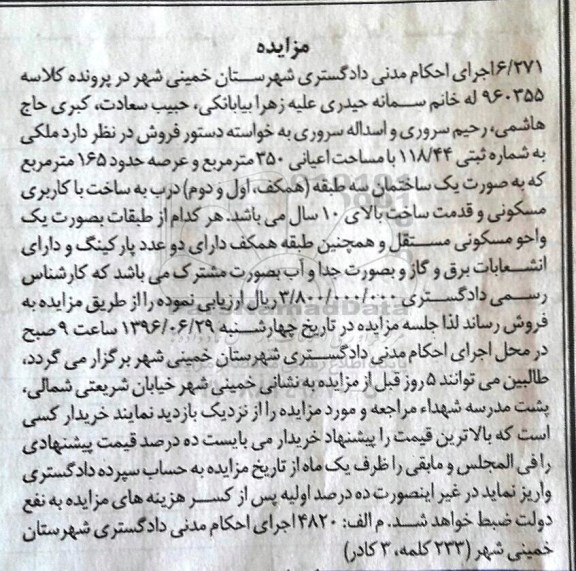 مزایده
۶/۲۷۱اجرای احکام مدنی دادگستری شهرستان خمینی شهر در پرونده کلاسه
۹۶۰۳۵۵ له خانم سمانه حیدری علیه زهرا بیابانکی، حبیب سعادت، کبری حاج
هاشمی، رحیم سروری و اسداله سروری به خواسته دستور فروش در نظر دارد ملکی
به شماره ثبتی ۱۱۸/۴۴ با مساحت اعیانی ۳۵۰ مترمربع و عرصه حدود ۱۶۵ مترمربع
که به صورت یک ساختمان سه طبقه (همکف، اول و دوم) درب به ساخت با کاربری
مسکونی و قدمت ساخت بالای ۱۰ سال می باشد. هر کدام از طبقات بصورت یک
واحو مسکونی مستقل و همچنین طبقه همکف دارای دو عدد پارکینگ و دارای
انشعابات برق و گاز و بصورت جدا و آب بصورت مشترک می باشد که کارشناس
رسمی دادگستری ۳/۸۰۰/۰۰۰/۰۰۰ ریال ارزیابی نموده را از طریق مزایده به
فروش رساند لذا جلسه مزایده در تاریخ چهارشنبه ۱۳۹۶/۰۶/۲۹ ساعت ۹ صبح
در محل اجرای احکام مدنی دادگستری شهرستان خمینی شهر برگزار می گردد،
طالبین می توانند ۵ روز قبل از مزایده به نشانی خمینی شهر خیابان شریعتی شمالی،
پشت مدرسه شهداء مراجعه و مورد مزایده را از نزدیک بازدید نمایند خریدار کسی
است که بالاترین قیمت را پیشنهاد خریدار می بایست ده درصد قیمت پیشنهادی
را فی المجلس و مابقی را ظرف یک ماه از تاریخ مزایده به حساب سپرده دادگستری
واریز نماید در غیر اینصورت ده درصد اولیه پس از کسر هزینه های مزایده به نفع
دولت ضبط خواهد شد. م الف: ۴۸۲۰ اجرای احکام مدنی دادگستری شهرستان
خمینی شهر (۲۳۳ کلمه، ۳ کادر)